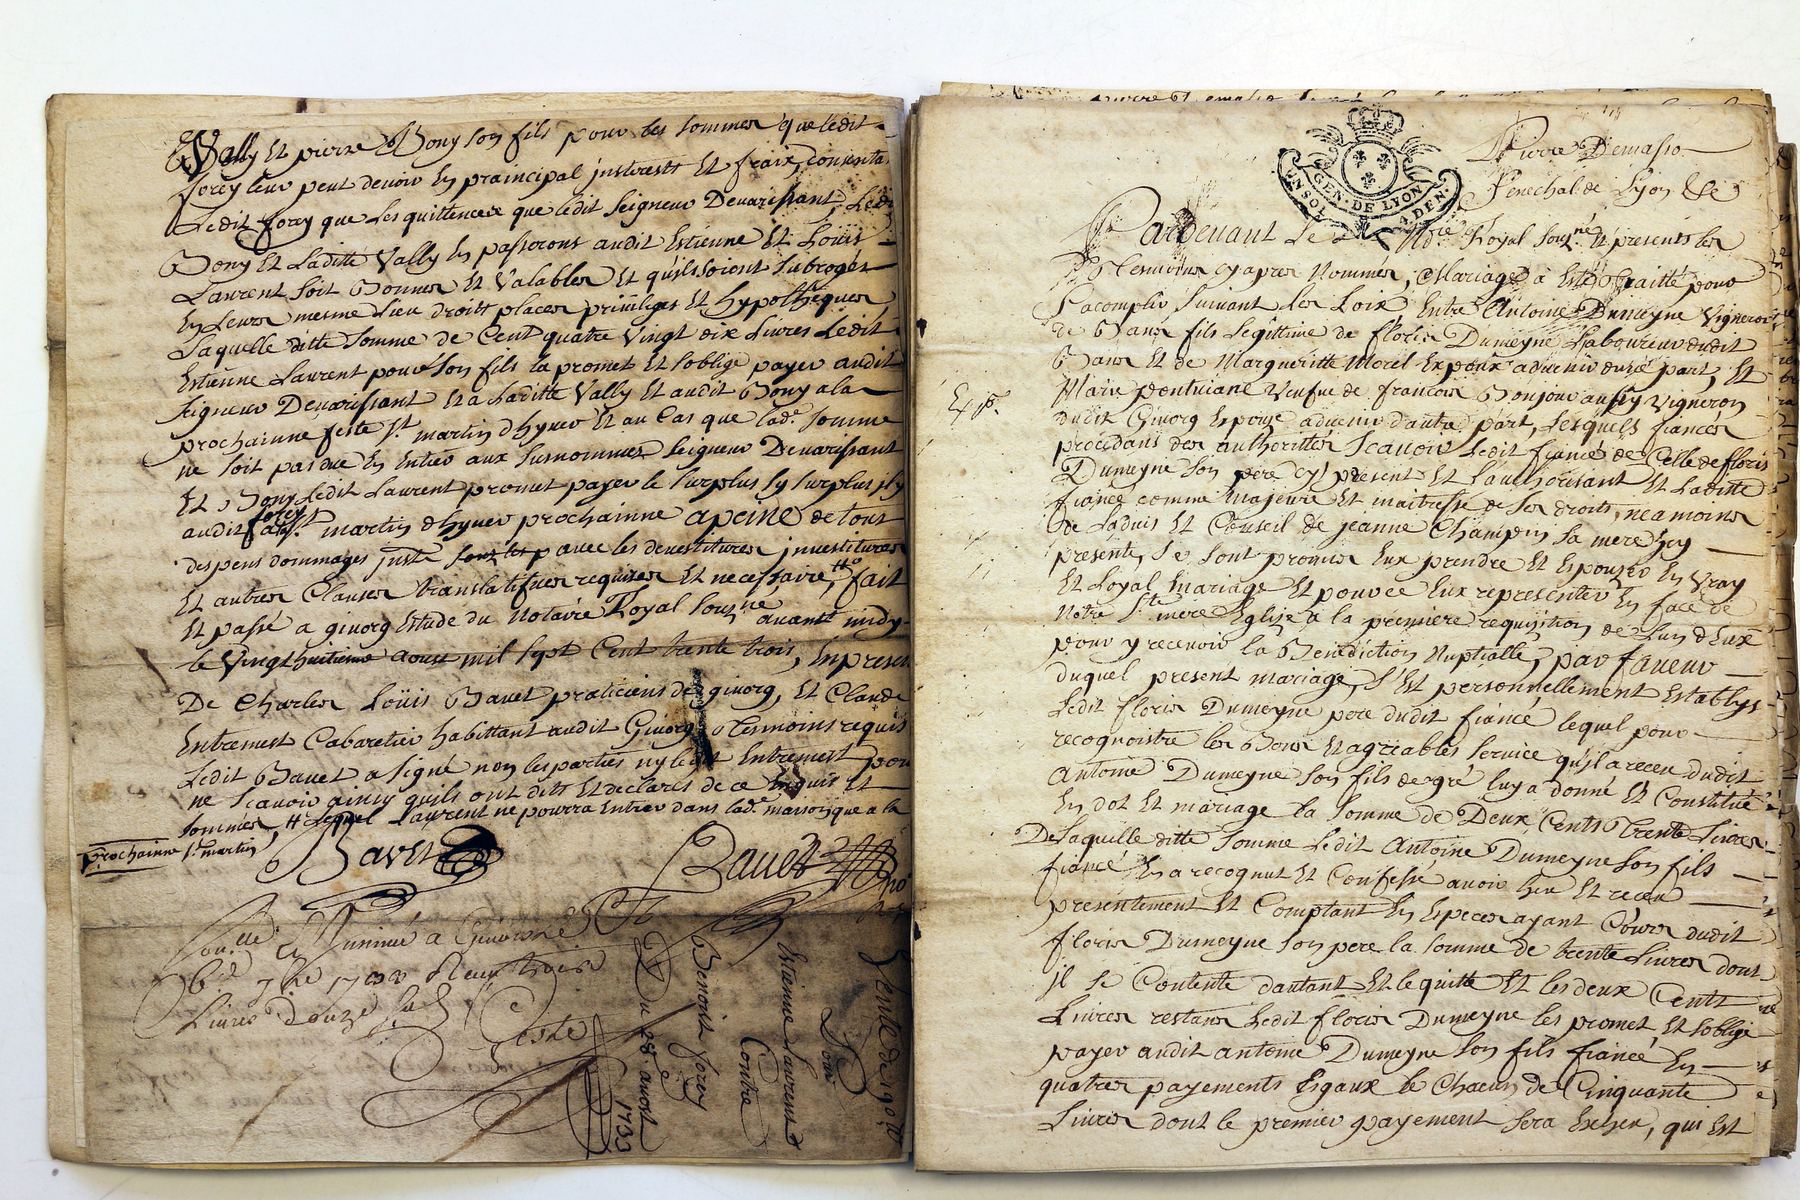 Vally Et pierre Bony son fils pour les sommes que ledit
forey leur peut devoir En praincipal justerests Et fraix, consenta
Ledit forey que Les quittences que ledit Seigneur Devarissant, Ledi
Bony Et Laditte Vally En passerons audit Estienne Et Louis
Laurent soit Bonnes Et Valables Et quils soient subrogés
En Leurs mesme Lieu droits places privileges Et hypotheques
Laquelle ditte somme de Cent quatre Vingt dix Livres Ledit
Estienne Laurent pour son fils la promet Et soblige payer audit
seigneur Devarissant Et a Laditte Vally Et audit Bony a la
prochainne feste St. martin dhyver Et au Cas que lad.e somme
ne soit pas due En Entier aux susnommes seigneur Devarissant
Et Bony Ledit Laurent promet payer le surplus sy surplus il y
audit forey a la St. martin dhyver prochainne a peine de tous
despens dommages juste avec les devestitures investitures
Et autres Clauses translatifues requises Et necessaire, fait
Et passé a givorg Estude du Notaire Royal sousne. avant midy
le Vingt huitieme aoust mil sept Cent trente trois, En presen
De Charles Loüis Bavet praticiens de givorg, Et Claude
Entremest Cabaretier habittant audit Givorg tesmoins requis
Ledit Bavet a signé non les parties ny ledit Entremest pour
ne scavoir ainsy quils ont dits Et declares de ce Enquis Et
sommés, Lequel Laurent ne pourra Entrer dans lad.e maison que a la
prochainne St. martin
Bavet
Bavet
a Givors le
7bre 1733 Reçu trois
Livres douze s
Coste
Vente de 190 lt
Pour
Estienne Laurent
Contre
Benoit forey
Du 28 avost 1733
Pierre Demasso
senechal de Lyon &c
GEN. DE LYON
UN SOL 4. DEN.
Pardevant Le Nore. Royal sousne. Et presents les
Tesmoins cy apres Nommés, Mariage à Esté traitté pour
sacomplir suivant les Loix Entre Antoine Dumeyne Vigneron
de Bans fils Legittime de floris Dumeyne Laboureur dudit
Bans Et de Margueritte Morel Expoux advenir dune part, Et
Marie pontviane Veufve de francois Bonjour aussy vigneron
Exp.
dudit Givorg Espouze advenir dautre part, Lesquels fiancés
procedans des authorittés scavoir Ledit fiancé de Celle de floris
Dumeyne son pere cy present Et Lauthorisant Et Laditte
fiance comme Majeure Et maitresse de ses droits, neamoins
de Ladvis Et Conseil de jeanne Champin sa mere icy
presente, se sont promis Eux prendre Et Espouzer En Vray
Et Loyal mariage Et pour ce Eux representer En face de
Notre Ste. mere Eglize a la premiere requisition de Lun d'Eux
pour y recevoir la Benediction Nuptialle, par faveur
duquel present mariage, s'Est personnellement Establys
Ledit floris Dumeyne pere dudit fiancé lequel pour
recognoistre les Bons Et agreables service qu'il a receu dudit
Antoine Dumeyne son fils de gré luy a donné Et Constitué
En dot Et mariage la somme de Deux Cents trente Livres
De Laquelle ditte somme Ledit Antoine Dumeyne son fils
fiancé En a recognut Et Confessé avoir heu Et receu
presentement Et Comptant En Especes ayant Cours dudit
floris Dumeyne son pere la somme de trente Livres dont
jl se Contente dautant Et le quitte Et les deux Cents
Livres restans Ledit floris Dumeyne les promet, Et soblige
payer audit antoine Dumeyne son fils fiancé En
quatres payements Egaux le Chacun de Cinquante
Livres dont le premier payement sera Exheu, qui Est